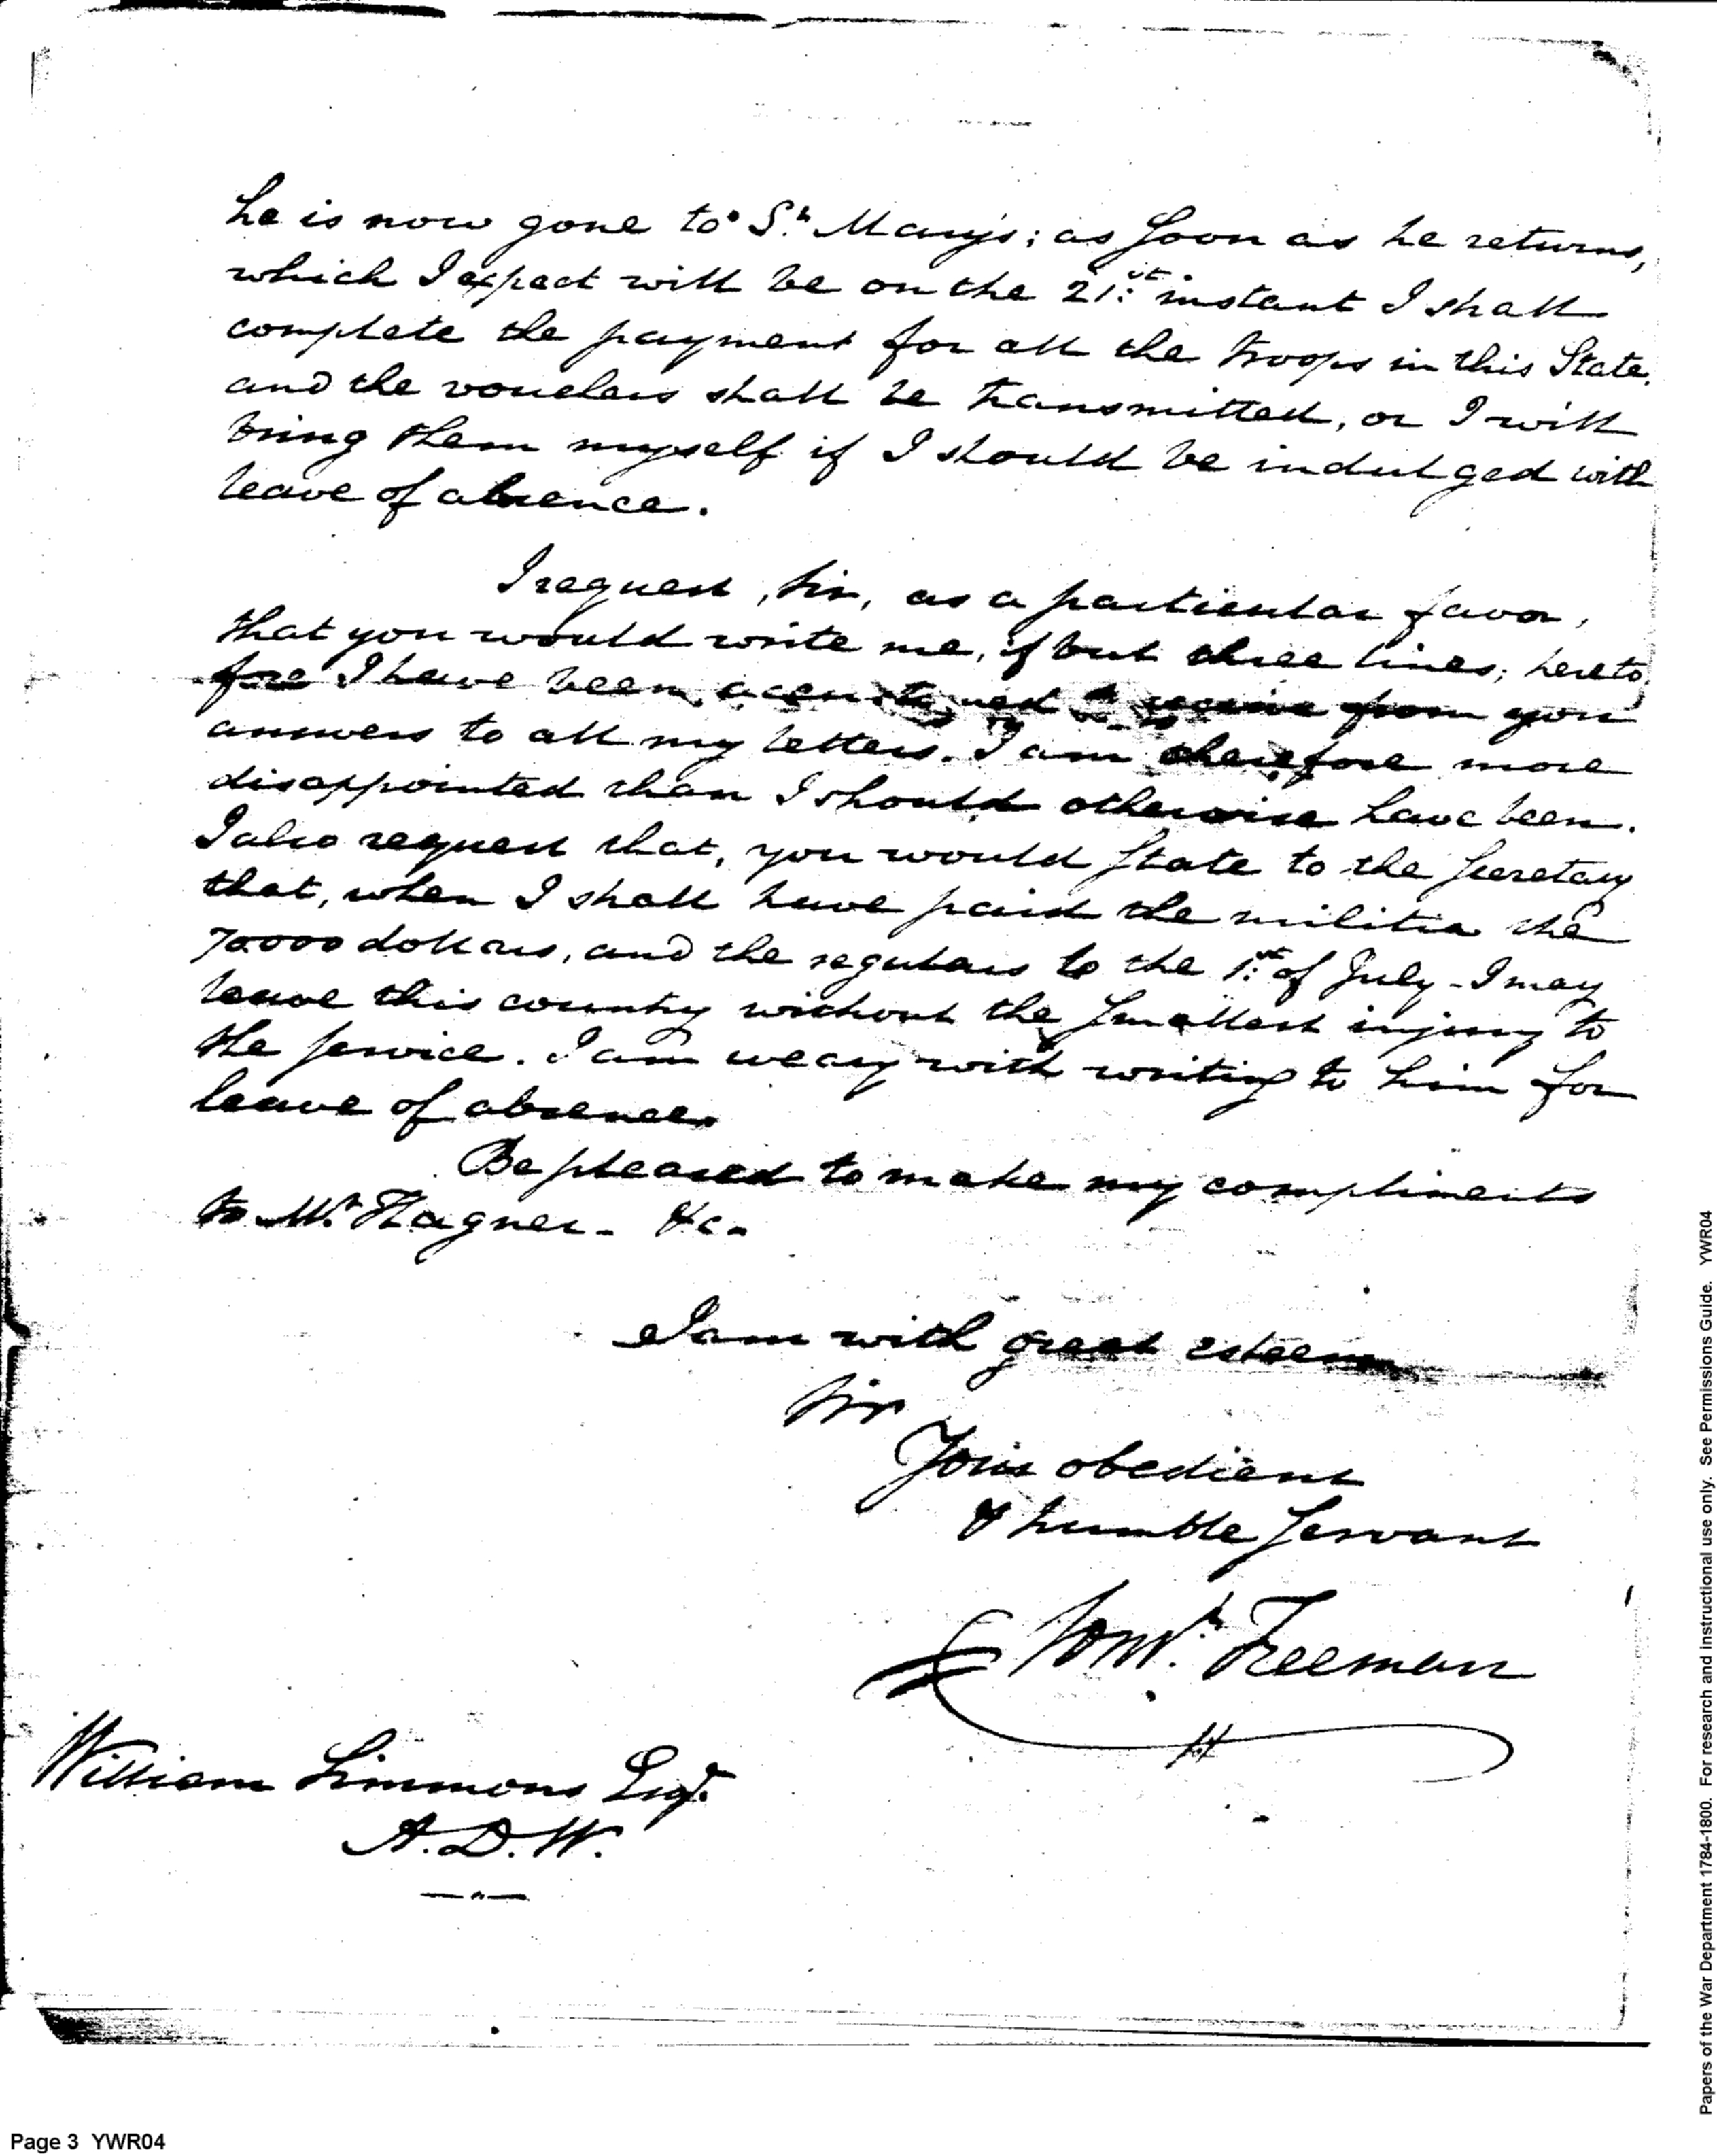 he is now gone to St. Mary's; as soon as he returns,
which I expect will be on the 21:st instant I shall
complete the payment for all the troops in this State.
and the vouchers shall be transmitted, or I will
bring them myself if I should be indulged with
leave of absence.
I request, Sir, as a particular favor,
that you would write me, if but three lines; hereto
fore I have been accustomed to receive from you
answers to all my letters. I am therefore more
disappointed than I should otherwise have been.
I also request that, you would State to the Secretary
that, when I shall have paid the militia the
70000 dollars, and the regulars to the 1:st of July - I may
leave this country without the smallest injury to
the service. I am weary with writing to him for
leave of absence.
Be pleased to make my compliments
to Mr. Hagner - &c.
I am with great esteem
Sir
Your obedient
& humble Servant
Freeman
William Simmons Esqr.
A.D.W.
Page 3 YWR04
Papers of the War Department 1784-1800. For research and instructional use only. See Permissions Guide. YWR04